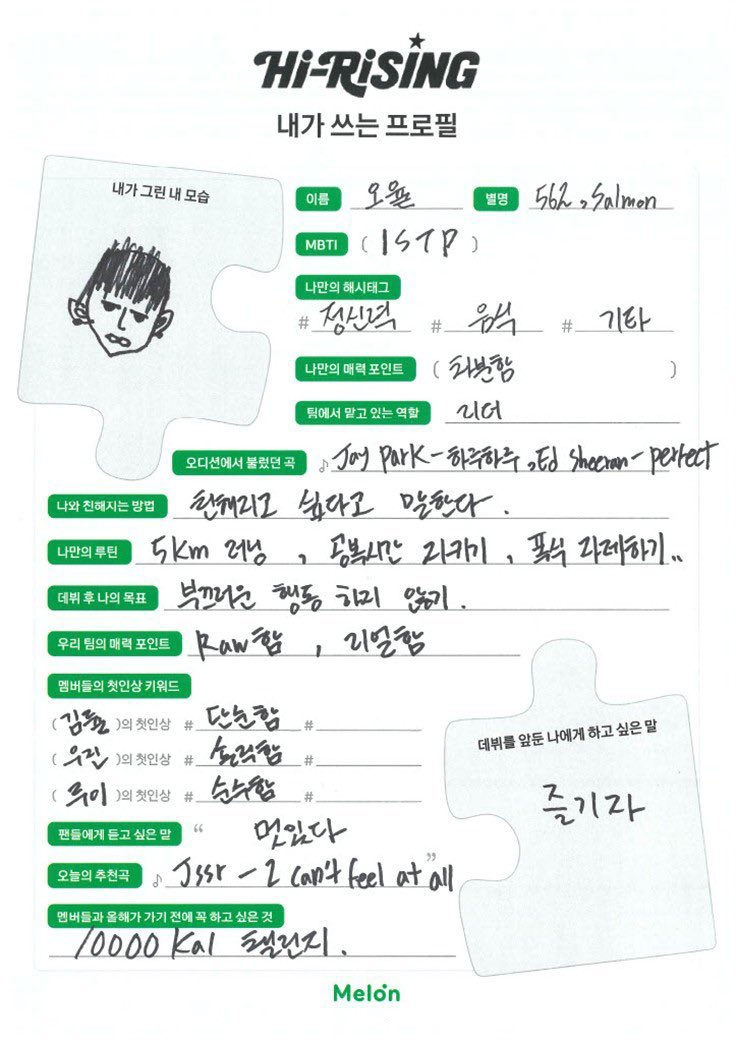 Hi-RiSING
내가 쓰는 프로필
내가 그린 내 모습
이름 오율 별명 562, Salmon
MBTI ( ISTP )
나만의 해시태그
# 정신력 # 음식 # 기타
나만의 매력 포인트 ( 차분함 )
팀에서 맡고 있는 역할 리더
오디션에서 불렀던 곡 ♪ Jay Park - 하루하루, Ed Sheeran - perfect
나와 친해지는 방법 친해지고 싶다고 말한다.
나만의 루틴 5km 러닝, 공복시간 지키기, 폭식 자제하기..
데뷔 후 나의 목표 부끄러운 행동 하지 않기.
우리 팀의 매력 포인트 Raw함, 리얼함
멤버들의 첫인상 키워드
( 김튼 )의 첫인상 # 단순함 #
( 우진 )의 첫인상 # 솔직함 #
( 루이 )의 첫인상 # 순수함 #
데뷔를 앞둔 나에게 하고 싶은 말
즐기자
팬들에게 듣고 싶은 말 “ 멋있다 ”
오늘의 추천곡 ♪ Jssr - I can't feel at all
멤버들과 올해가 가기 전에 꼭 하고 싶은 것
10000 Kal 챌린지.
Melon